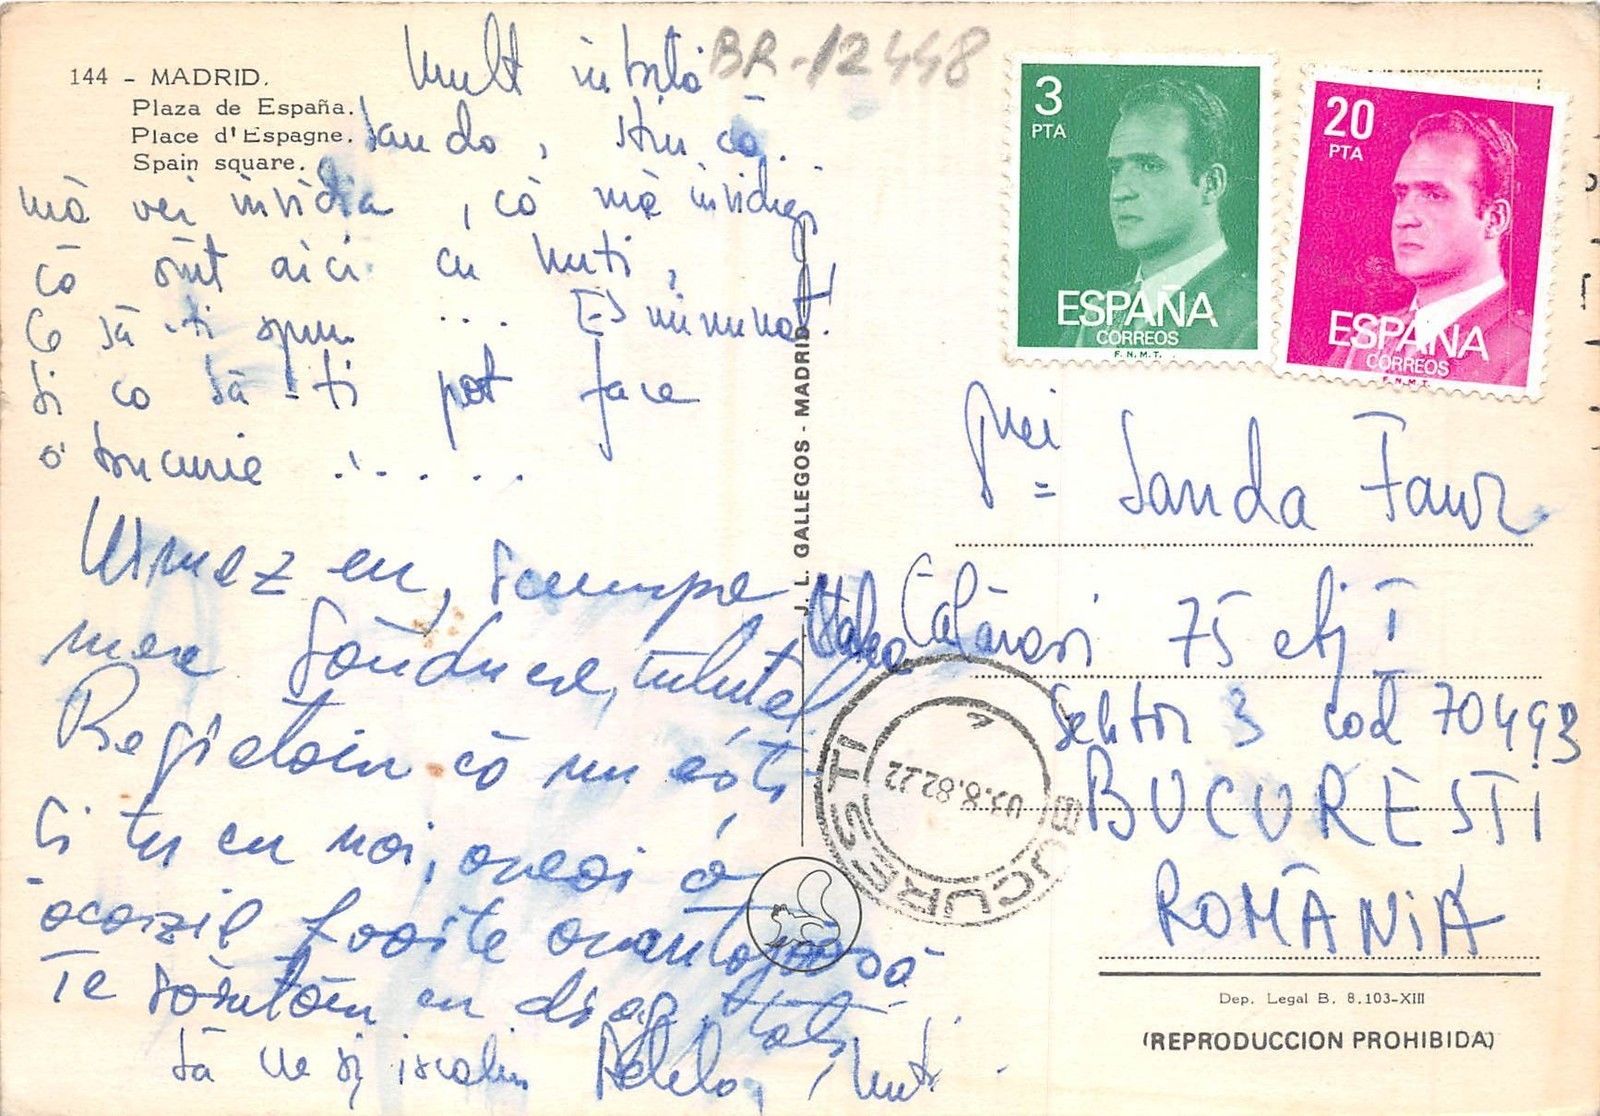 144 - MADRID.
Plaza de España.
Place d'Espagne.
Spain square.
BR-12448
Mult iubită
Sando, știu că..
mă vei invidia, că mă invidiezi
că sînt aici cu Nuti,
Ce să-ți spun ... E minunat!
Și ce să-ți pot face
o bucurie .....
Urmez eu, scumpa
mea Sănducu,
Regretăm că nu ești
și tu cu noi, aveai o
ocazie foarte avantajoasă
Te sărutăm cu drag, toți
să ne și iscălim Nuti
J. L. GALLEGOS - MADRID
3
PTA
ESPAÑA
CORREOS
F.N.M.T.
20
PTA
ESPAÑA
CORREOS
F.N.M.T.
Sanda Faur
Calea Călărași 75 etj I
Sektor 3 cod 70493
BUCUREȘTI
ROMÂNIA
BUCUREȘTI
.8.82.22
Dep. Legal B. 8.103-XIII
(REPRODUCCION PROHIBIDA)